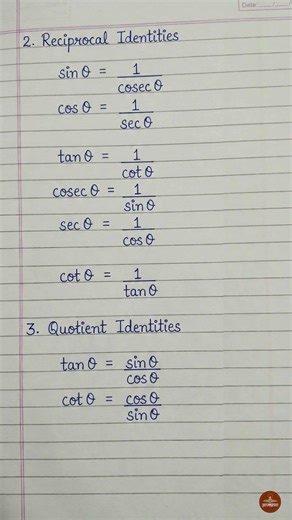 Date:
2. Reciprocal Identities
sin θ = 1/cosec θ
cos θ = 1/sec θ
tan θ = 1/cot θ
cosec θ = 1/sin θ
sec θ = 1/cos θ
cot θ = 1/tan θ
3. Quotient Identities
tan θ = sin θ/cos θ
cot θ = cos θ/sin θ